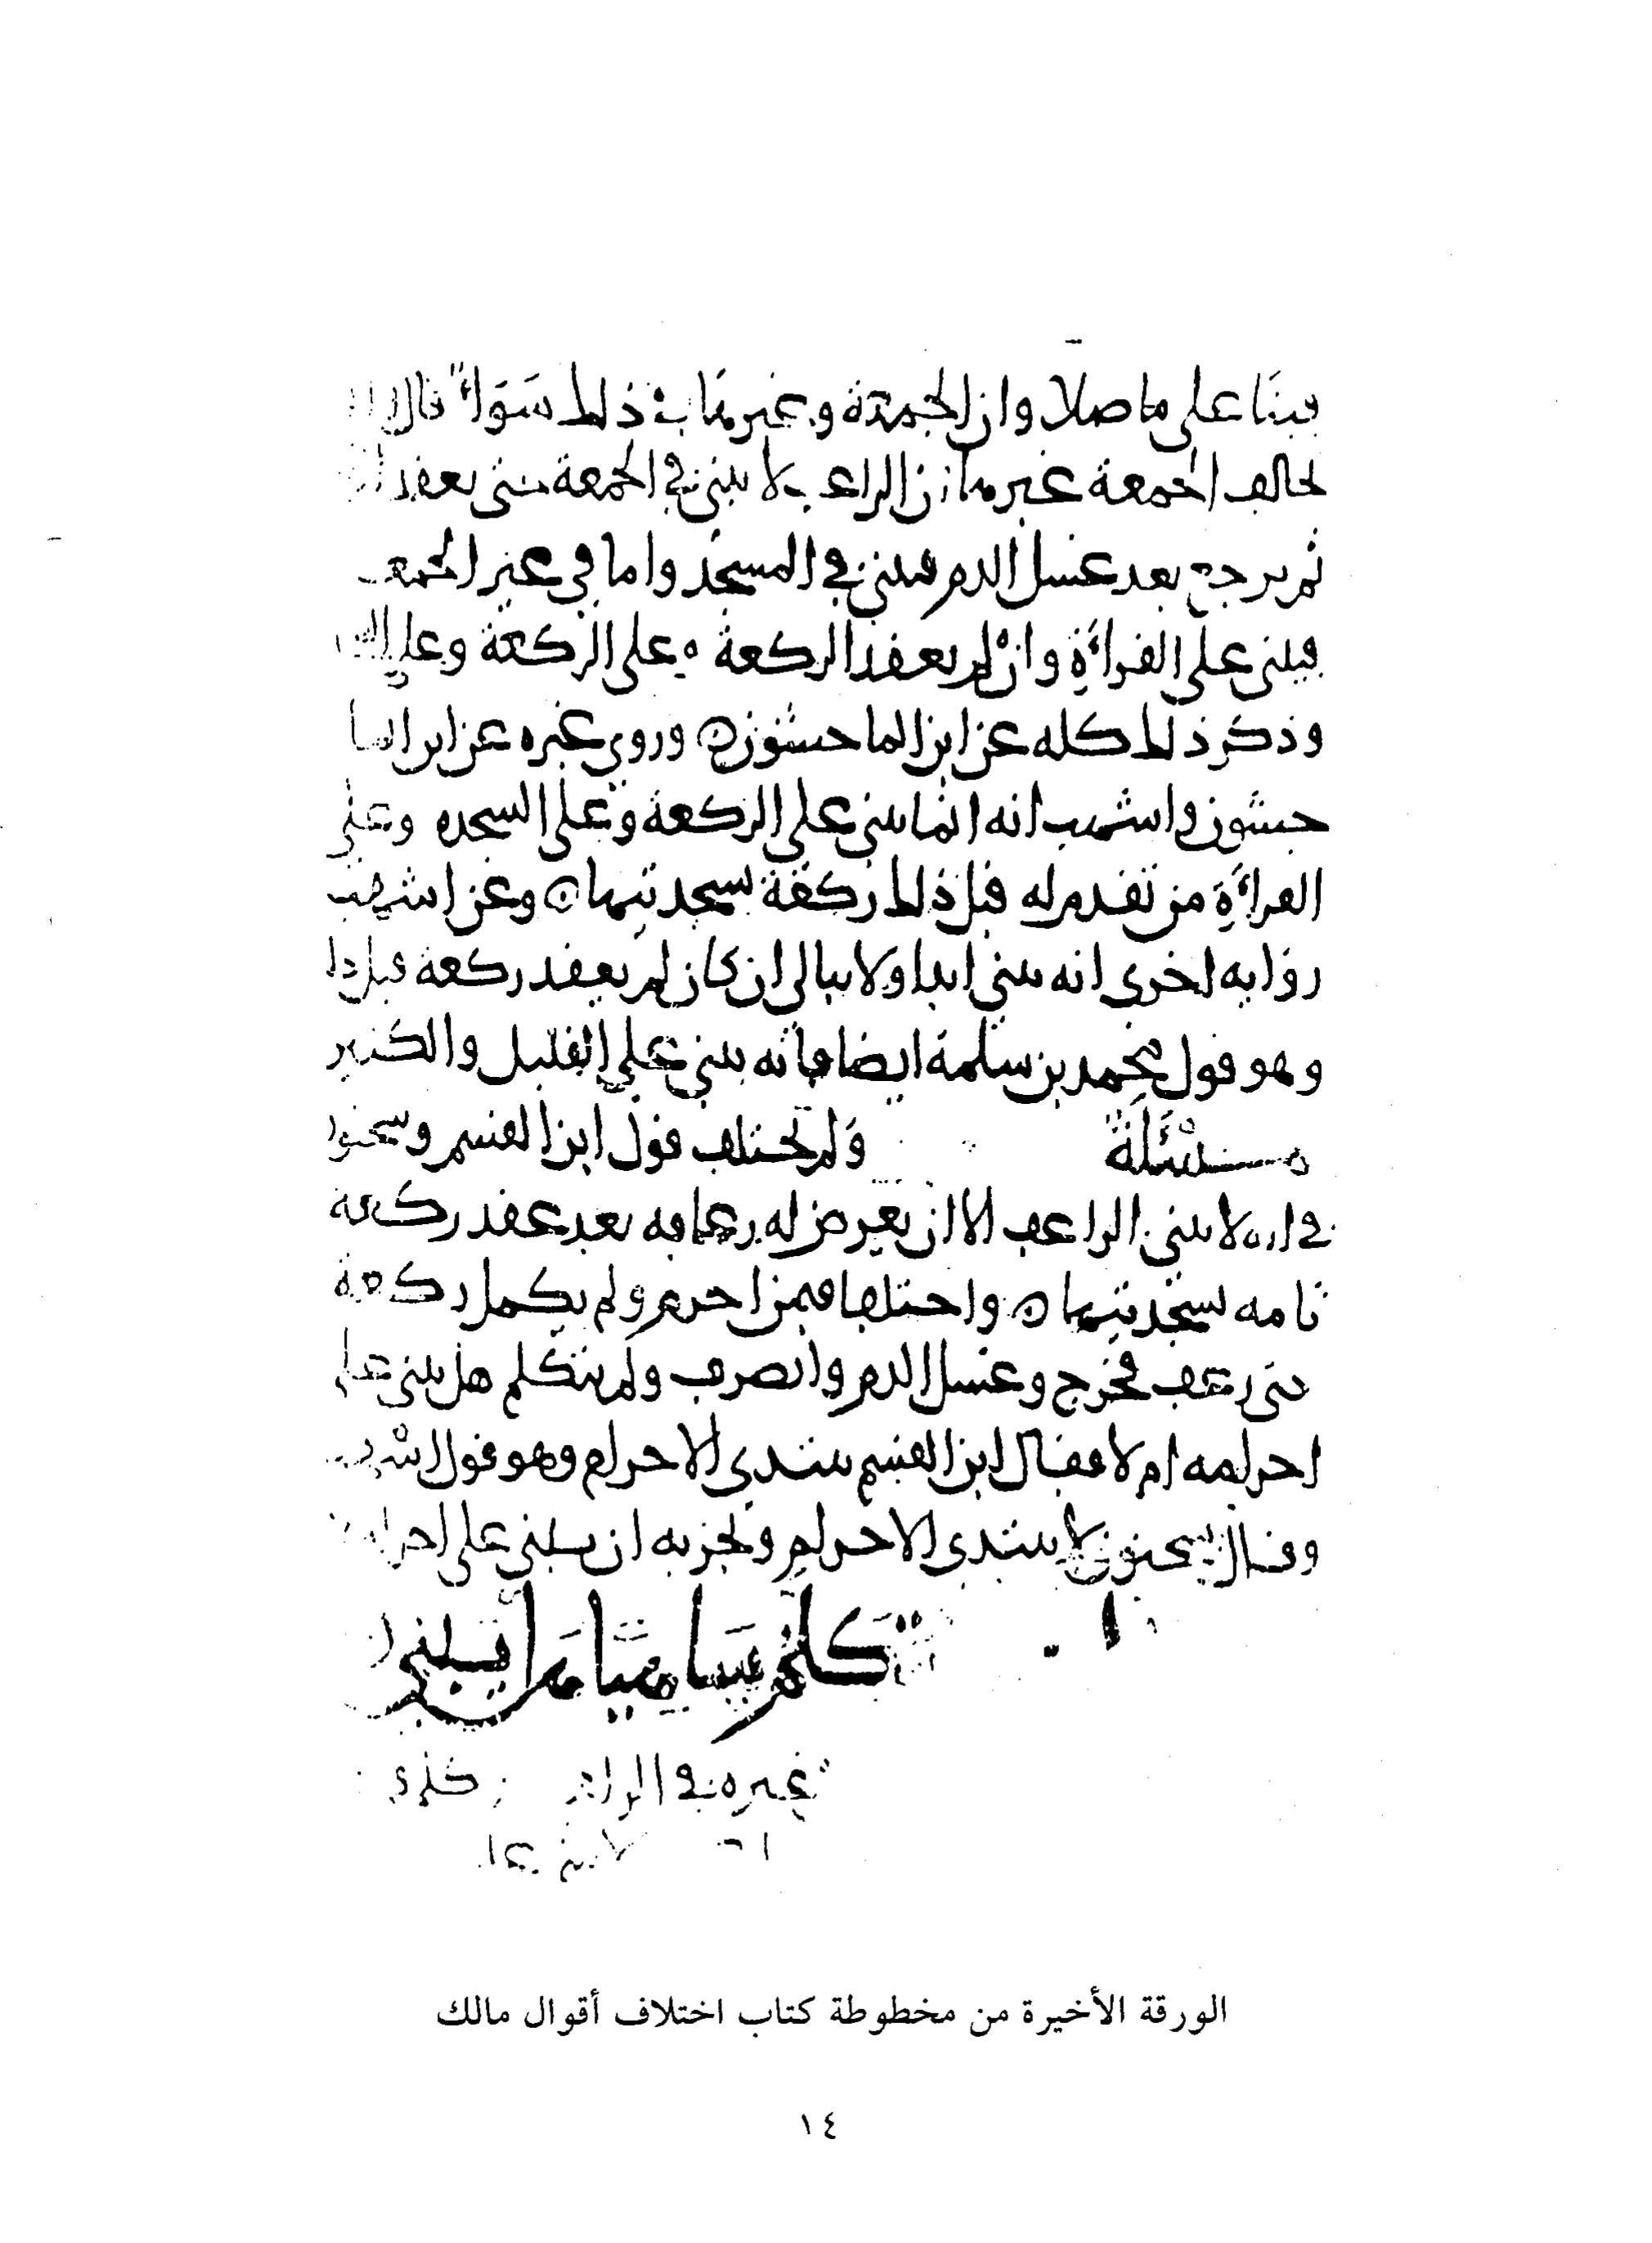 فبنا على ما صلا وان الجمعة وغيرها في ذلك سَوَاءٌ قال
تخالف الجمعة غيرها ان الراعف لا يبني في الجمعة حتى يعقد
ثم يرجع بعد غسل الدم فيبني في المسجد واما في غير الجمعة
فيبني على القراءة وان لم يعقد الركعة وعلى الركعة وعلى
وذكر ذلك كله عن ابن الماحشون وروى غيره عن ابن الما
حشون واشهب انه انما يبني على الركعة وعلى السجدة وعلى
القراءة من تقدم له قبل ذلك ركعة بسجدتيها وعن اشهب
رواية اخرى انه يبني ابدا ولا يبالي ان كان لم يعقد ركعة قبل ذلك
وهو قول محمد بن سلمة ايضا فانه يبني على القليل والكثير
مسْئَلَة ولم يختلف قول ابن القسم وسحنون
في انه لا يبني الراعف الا ان يعرض له رعافه بعد عقد ركعة
تامة بسجدتيها واختلفا فيمن احرم ولم يكمل ركعة
حتى رعف فخرج وغسل الدم وانصرف ولم يتكلم هل يبني على
احرامه ام لا فقال ابن القسم يبتدي الاحرام وهو قول اشهب
وقال سحنون لا يبتدي الاحرام ويجزيه ان يبني على احرامه
غيره في
الورقة الأخيرة من مخطوطة كتاب اختلاف أقوال مالك
١٤